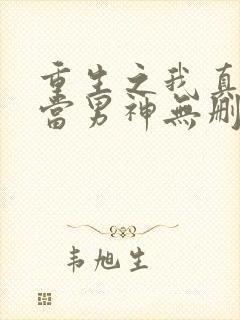 重生之我真
當男神無刪
韦旭生